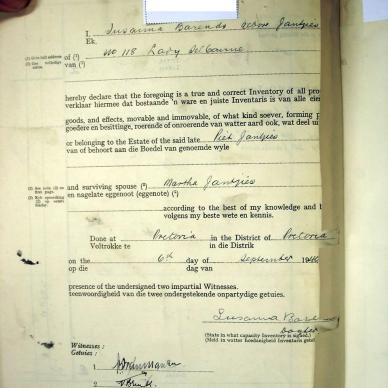 I, Susanna Barends born Jantjies
Ek,
(1) Give full address of (1) No 118 Lady Selborne
van (1)
hereby declare that the foregoing is a true and correct Inventory of all pro
verklaar hiermee dat bostaande 'n ware en juiste Inventaris is van alle eie
goods, and effects, movable and immovable, of what kind soever, forming p
goedere en besittings, roerende of onroerende van watter aard ook, wat deel ui
or belonging to the Estate of the said late Piet Jantjies
van of behoort aan die Boedel van genoemde wyle
and surviving spouse (2) Martha Jantjies
en nagelate eggenoot (eggenote) (2)
according to the best of my knowledge and b
volgens my beste wete en kennis.
Done at Pretoria in the District of Pretoria
Voltrokke te in die Distrik
on the 6th day of September
op die dag van
presence of the undersigned two impartial Witnesses.
teenwoordigheid van die twee ondergetekende onpartydige getuies.
Susanna Bare
(State in what capacity Inventory is signed.)
(Meld in watter hoedanigheid Inventaris getek
Witnesses :
Getuies :
1
2